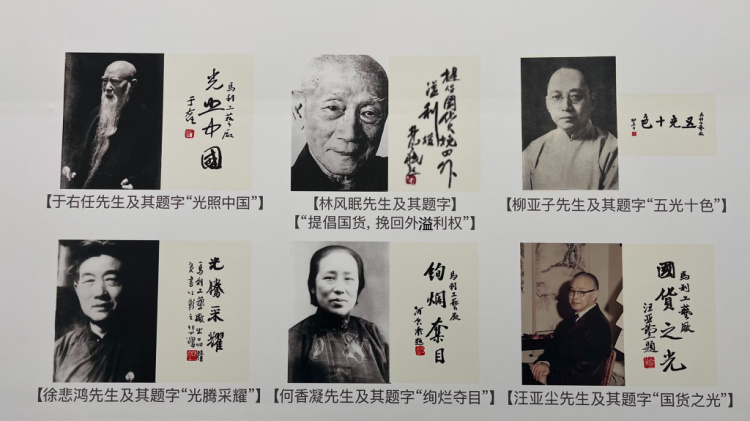 馬利工藝廠
光照中國
于右任
【于右任先生及其题字“光照中国”】
提倡國貨挽回外
溢利權
【林风眠先生及其题字】
【“提倡国货，挽回外溢利权”】
五光十色
【柳亚子先生及其题字“五光十色”】
光騰采耀
馬利工藝廠出品
【徐悲鸿先生及其题字“光腾采耀”】
馬利工藝廠
絢爛奪目
何香凝題
【何香凝先生及其题字“绚烂夺目”】
馬利工藝廠
國貨之光
汪亞塵題
【汪亚尘先生及其题字“国货之光”】